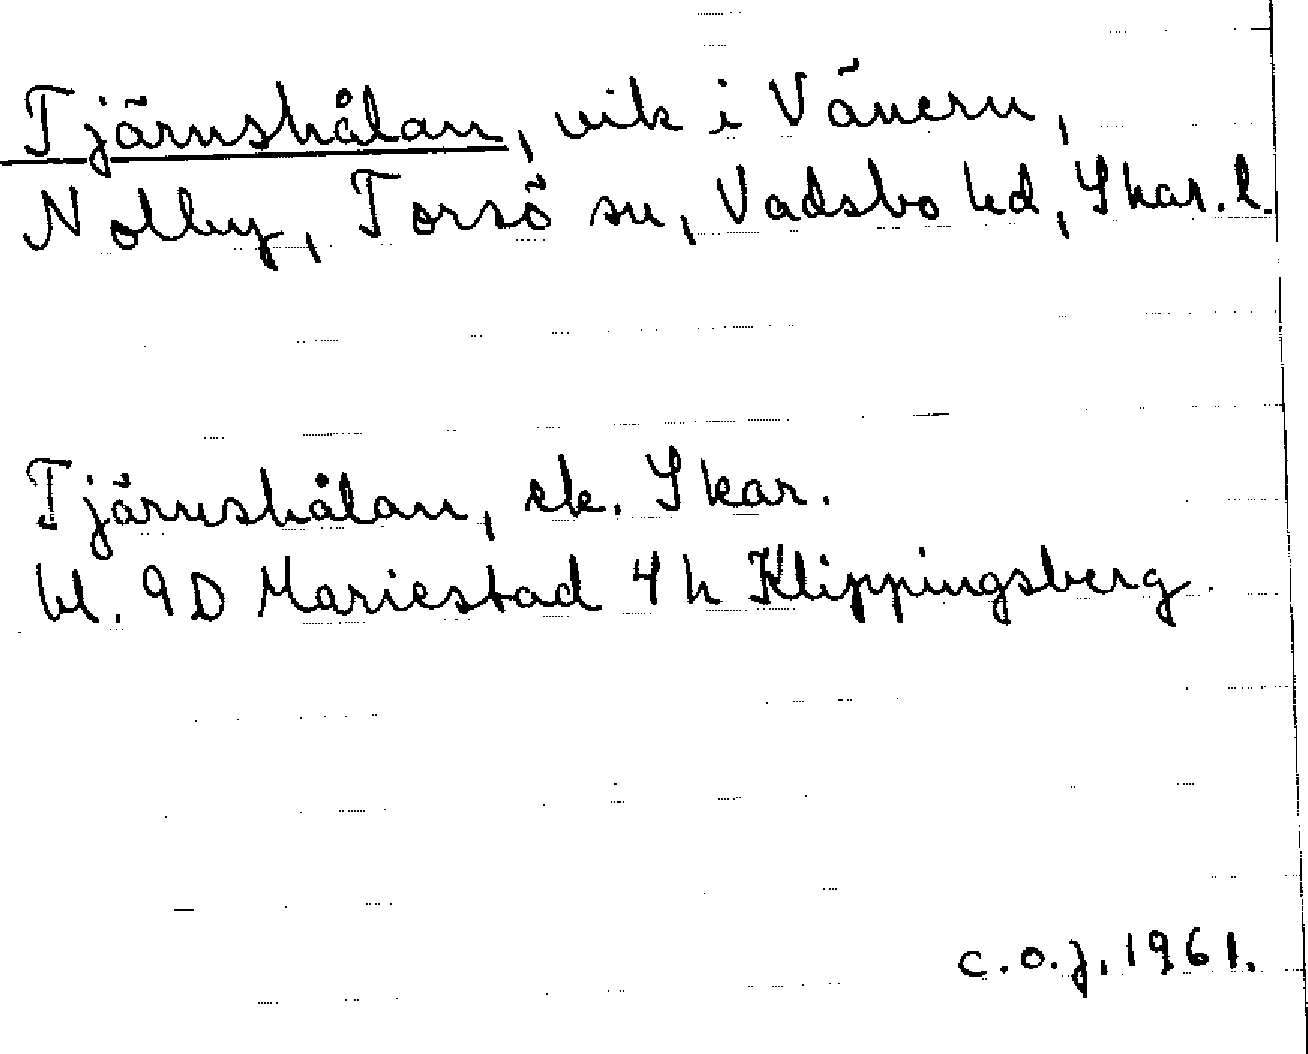 Tjärnshålan, vik i Vänern,
Nolby, Torsö sn, Vadsbo hd, Skar. l.
Tjärnshålan, ek. Skar.
bl. 9D Mariestad 4 h Klippingsberg.
c.o.j. 1961.